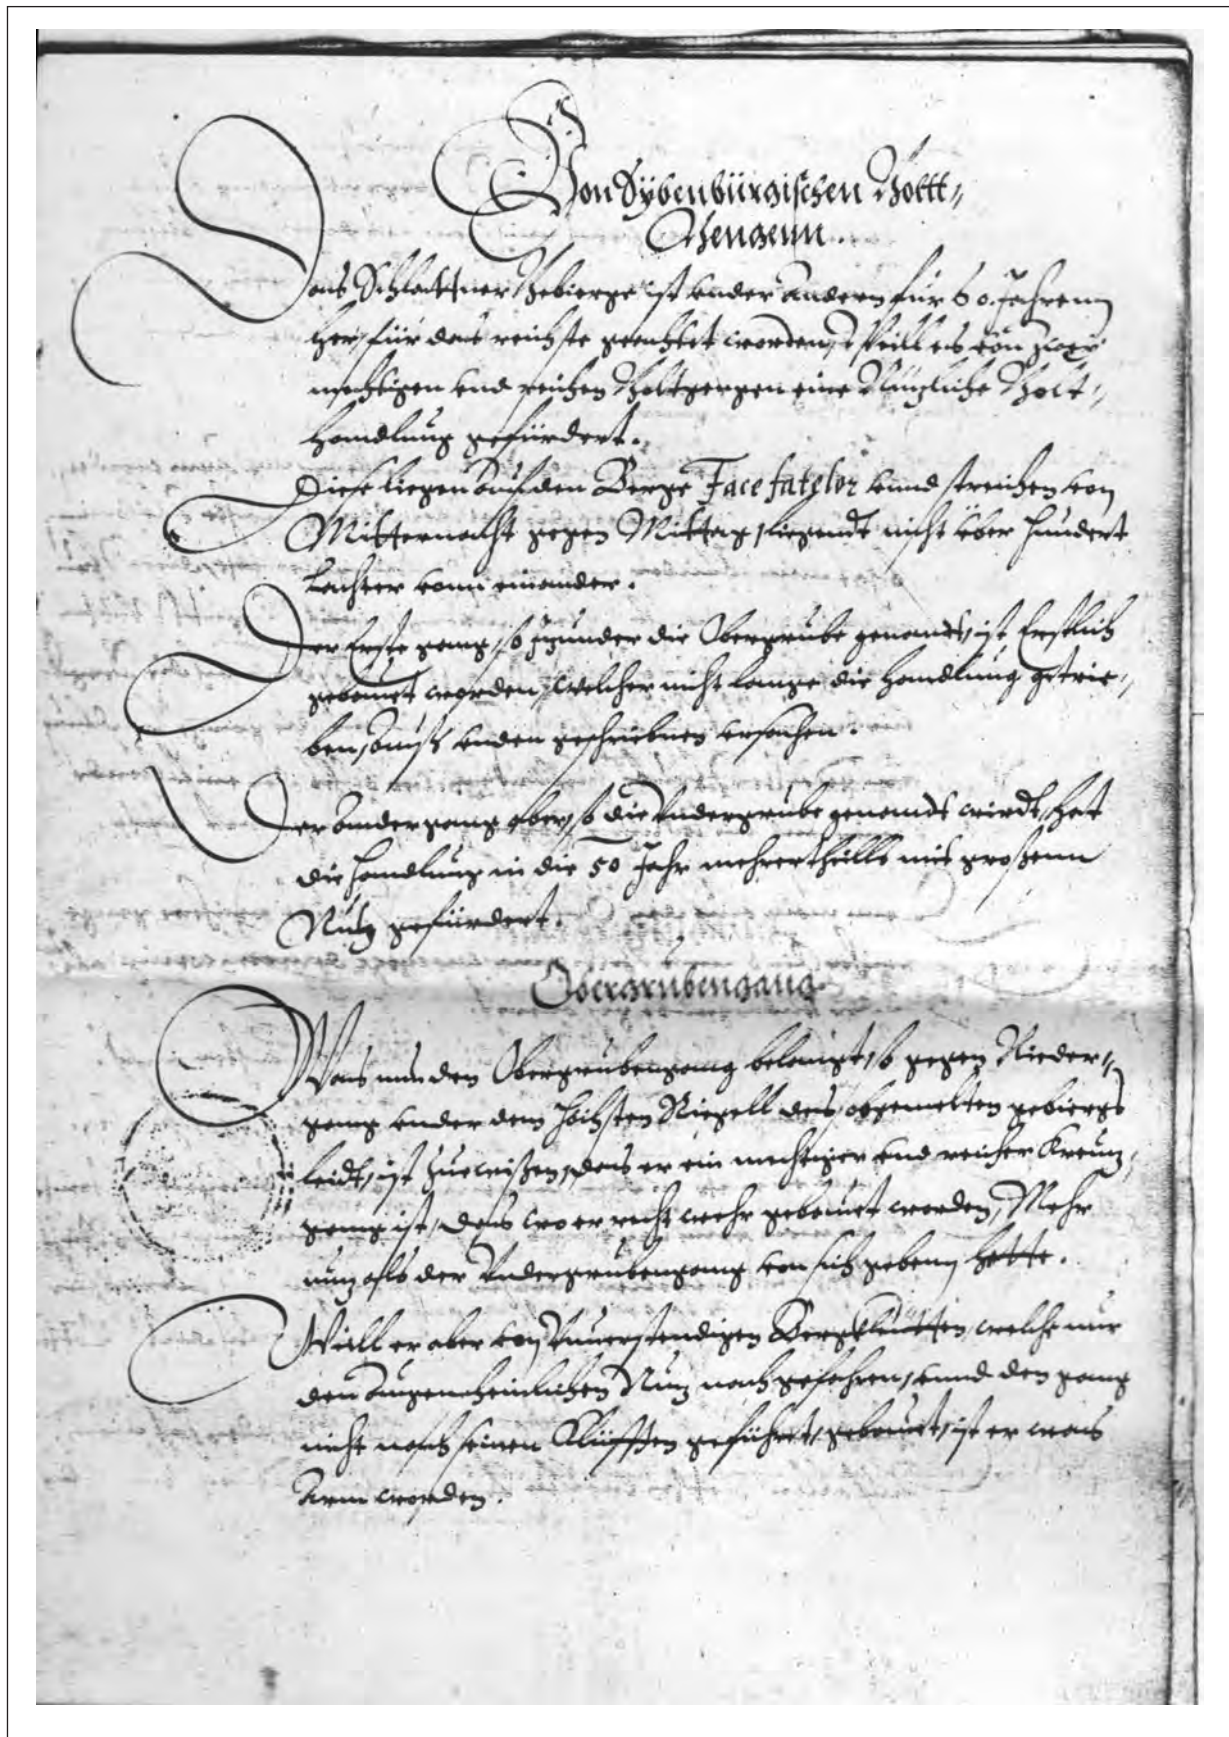 Von Sÿbenbürgischen Goltt⸗
Gengenn.
Das Schlattner Gebierge ist vnder Andern für 60. Jahrenn
her, für das reichste geachtet worden, Weill es von zwey
mechtigen vnd reichen Goltgengen eine Nüzliche Golt⸗
handlung gefürdert.
Diese liegen auf den Berge Facefatzlor vnnd streichen von
Mitternacht gegen Mittag, liegendt nicht über hundert
Lachter vonn einander.
Der Erste gang, so Jzunder die Obergrube genandt, ist Erstlich
gebauet worden, welcher nicht lange die handlung getrie⸗
ben, auß vnden geschriebnen vrsachen.
Der ander gang aber, so die Vndergrube genandt wirdt, hat
die handlung in die 50 Jahr mehrertheills mit großenn
Nutz gefürdert.
Obergrubengang
Was nun den Obergrubengang belangt, so gegen Nieder⸗
gang vnder dem höchsten Riegell des obgemelten gebiergs
leidt, ist zue wißen, das er ein mechtiger vnd reicher Kreuz⸗
gang ist, das wo er recht wehr gebauet worden, Mehr
nuz als der Vndergrubengang von sich geben hette.
Weill er aber von Vnuerstendigen Bergkleutten, welche nur
den augenscheinlichen Nuz nachgefahren, vnnd den gang
nicht nach seinen Klüfften geführet, gebauet, ist er was
Arm worden.